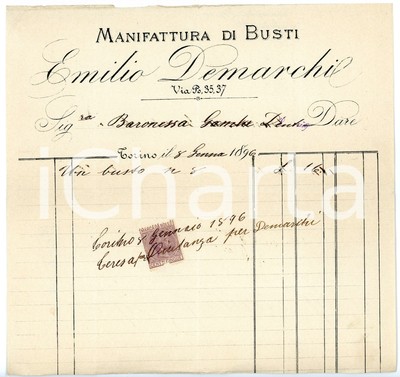 MANIFATTURA DI BUSTI
Emilio Demarchi
Via Po, 35, 37
Sig ra Baronessa Dare
Torino, il 8 Genna 1896
un busto n 8 £ 16
iCharta
Torino 8 Gennaio 1896
Teresa per Demarchi